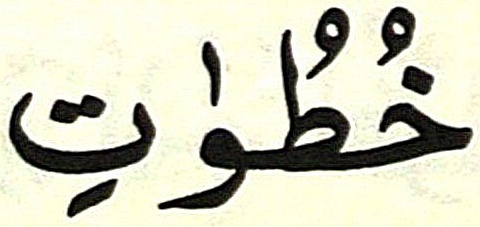 خُطُوٰتِ